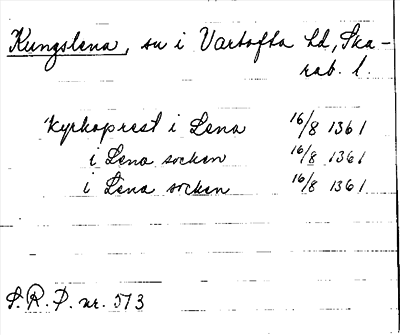 Kungslena, sn i Vartofta hd, Ska-
rab. l.
Kyrkoprest i Lena 16/8 1361
i Lena socken 16/8 1361
i Lena socken 16/8 1361
S.R.P. nr. 573